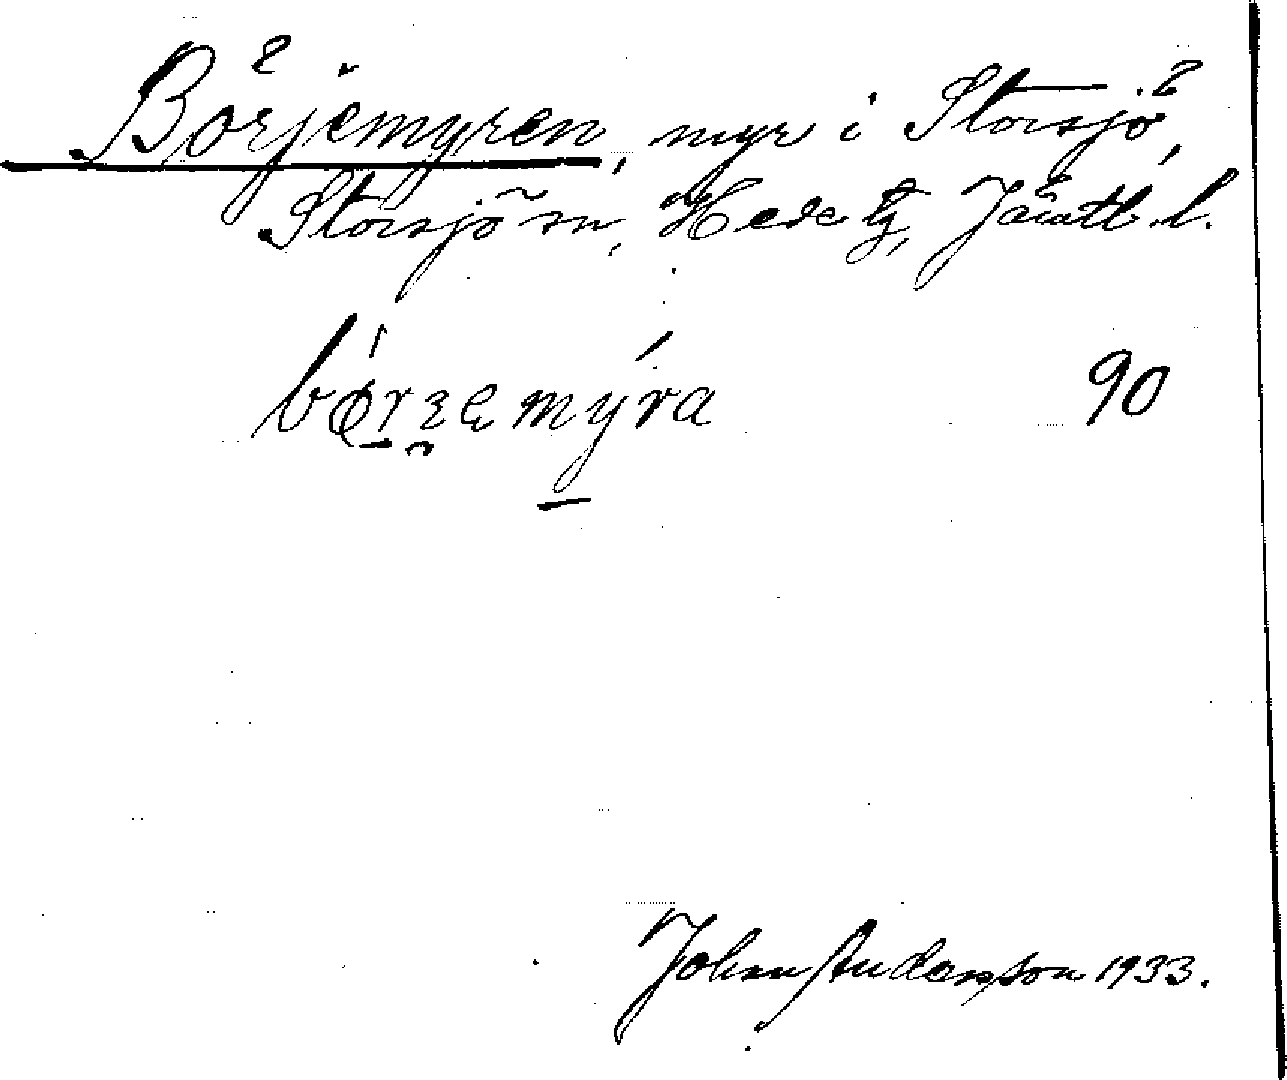 Börjemyren, myr i Storsjö,
Storsjö sn, Hede tg, Jämtl. l.
bø̀rjemýra 90
Johan Andersson 1933.